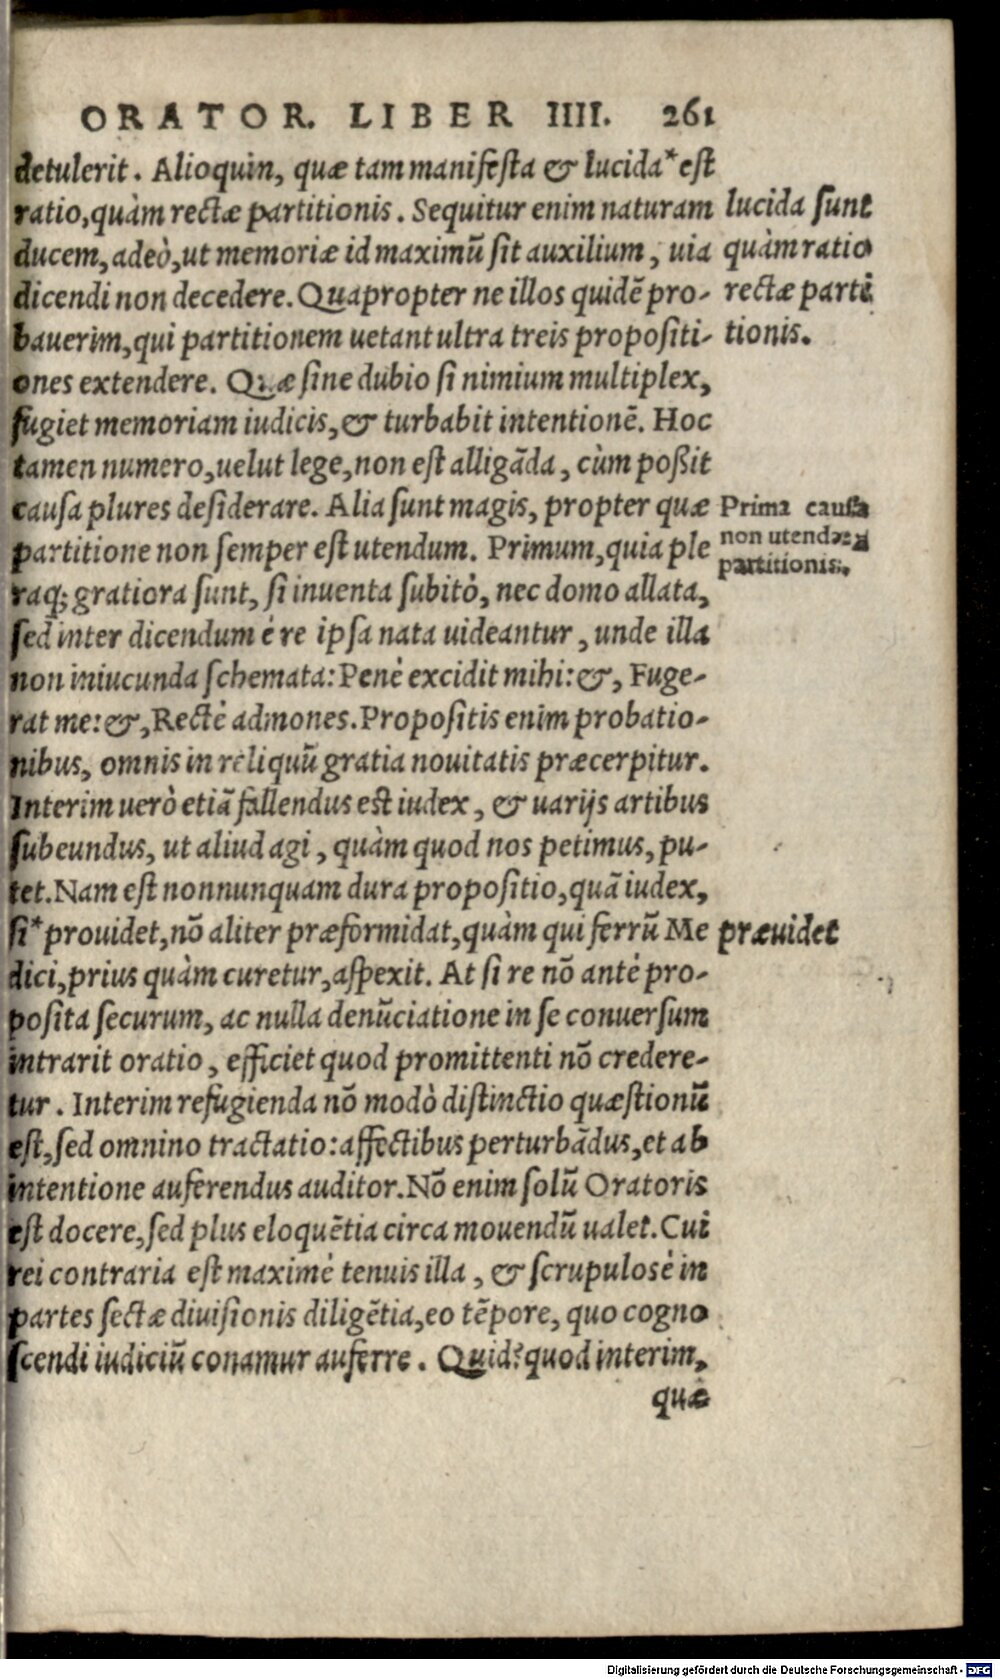 ORATOR. LIBER IIII. 261
detulerit. Alioquin, quæ tam manifesta & lucida* est
ratio, quàm rectæ partitionis. Sequitur enim naturam
ducem, adeò, ut memoriæ id maximū sit auxilium, uia
dicendi non decedere. Quapropter ne illos quidē pro-
bauerim, qui partitionem uetant ultra treis propositi-
ones extendere. Quæ sine dubio si nimium multiplex,
fugiet memoriam iudicis, & turbabit intentionē. Hoc
tamen numero, uelut lege, non est alligāda, cùm poßit
causa plures desiderare. Alia sunt magis, propter quæ
partitione non semper est utendum. Primum, quia ple
raq; gratiora sunt, si inuenta subitò, nec domo allata,
sed inter dicendum é re ipsa nata uideantur, unde illa
non iniucunda schemata: Penè excidit mihi: &, Fuge-
rat me: &, Rectè admones. Propositis enim probatio-
nibus, omnis in reliquū gratia nouitatis præcerpitur.
Interim uerò etiā fallendus est iudex, & uarijs artibus
subeundus, ut aliud agi, quàm quod nos petimus, pu-
tet. Nam est nonnunquam dura propositio, quā iudex,
si* prouidet, nō aliter præformidat, quàm qui ferrū Me
dici, prius quàm curetur, aspexit. At si re nō antè pro-
posita securum, ac nulla denūciatione in se conuersum
intrarit oratio, efficiet quod promittenti nō credere-
tur. Interim refugienda nō modò distinctio quæstionū
est, sed omnino tractatio: affectibus perturbādus, et ab
intentione auferendus auditor. Nō enim solū Oratoris
est docere, sed plus eloquētia circa mouendū ualet. Cui
rei contraria est maximè tenuis illa, & scrupulosè in
partes sectæ diuisionis diligētia, eo tēpore, quo cogno
scendi iudiciū conamur auferre. Quid? quod interim,
quæ
lucida sunt
quàm ratio
rectæ parti
tionis.
Prima causa
non utendæ
partitionis.
præuidet
Digitalisierung gefördert durch die Deutsche Forschungsgemeinschaft - DFG